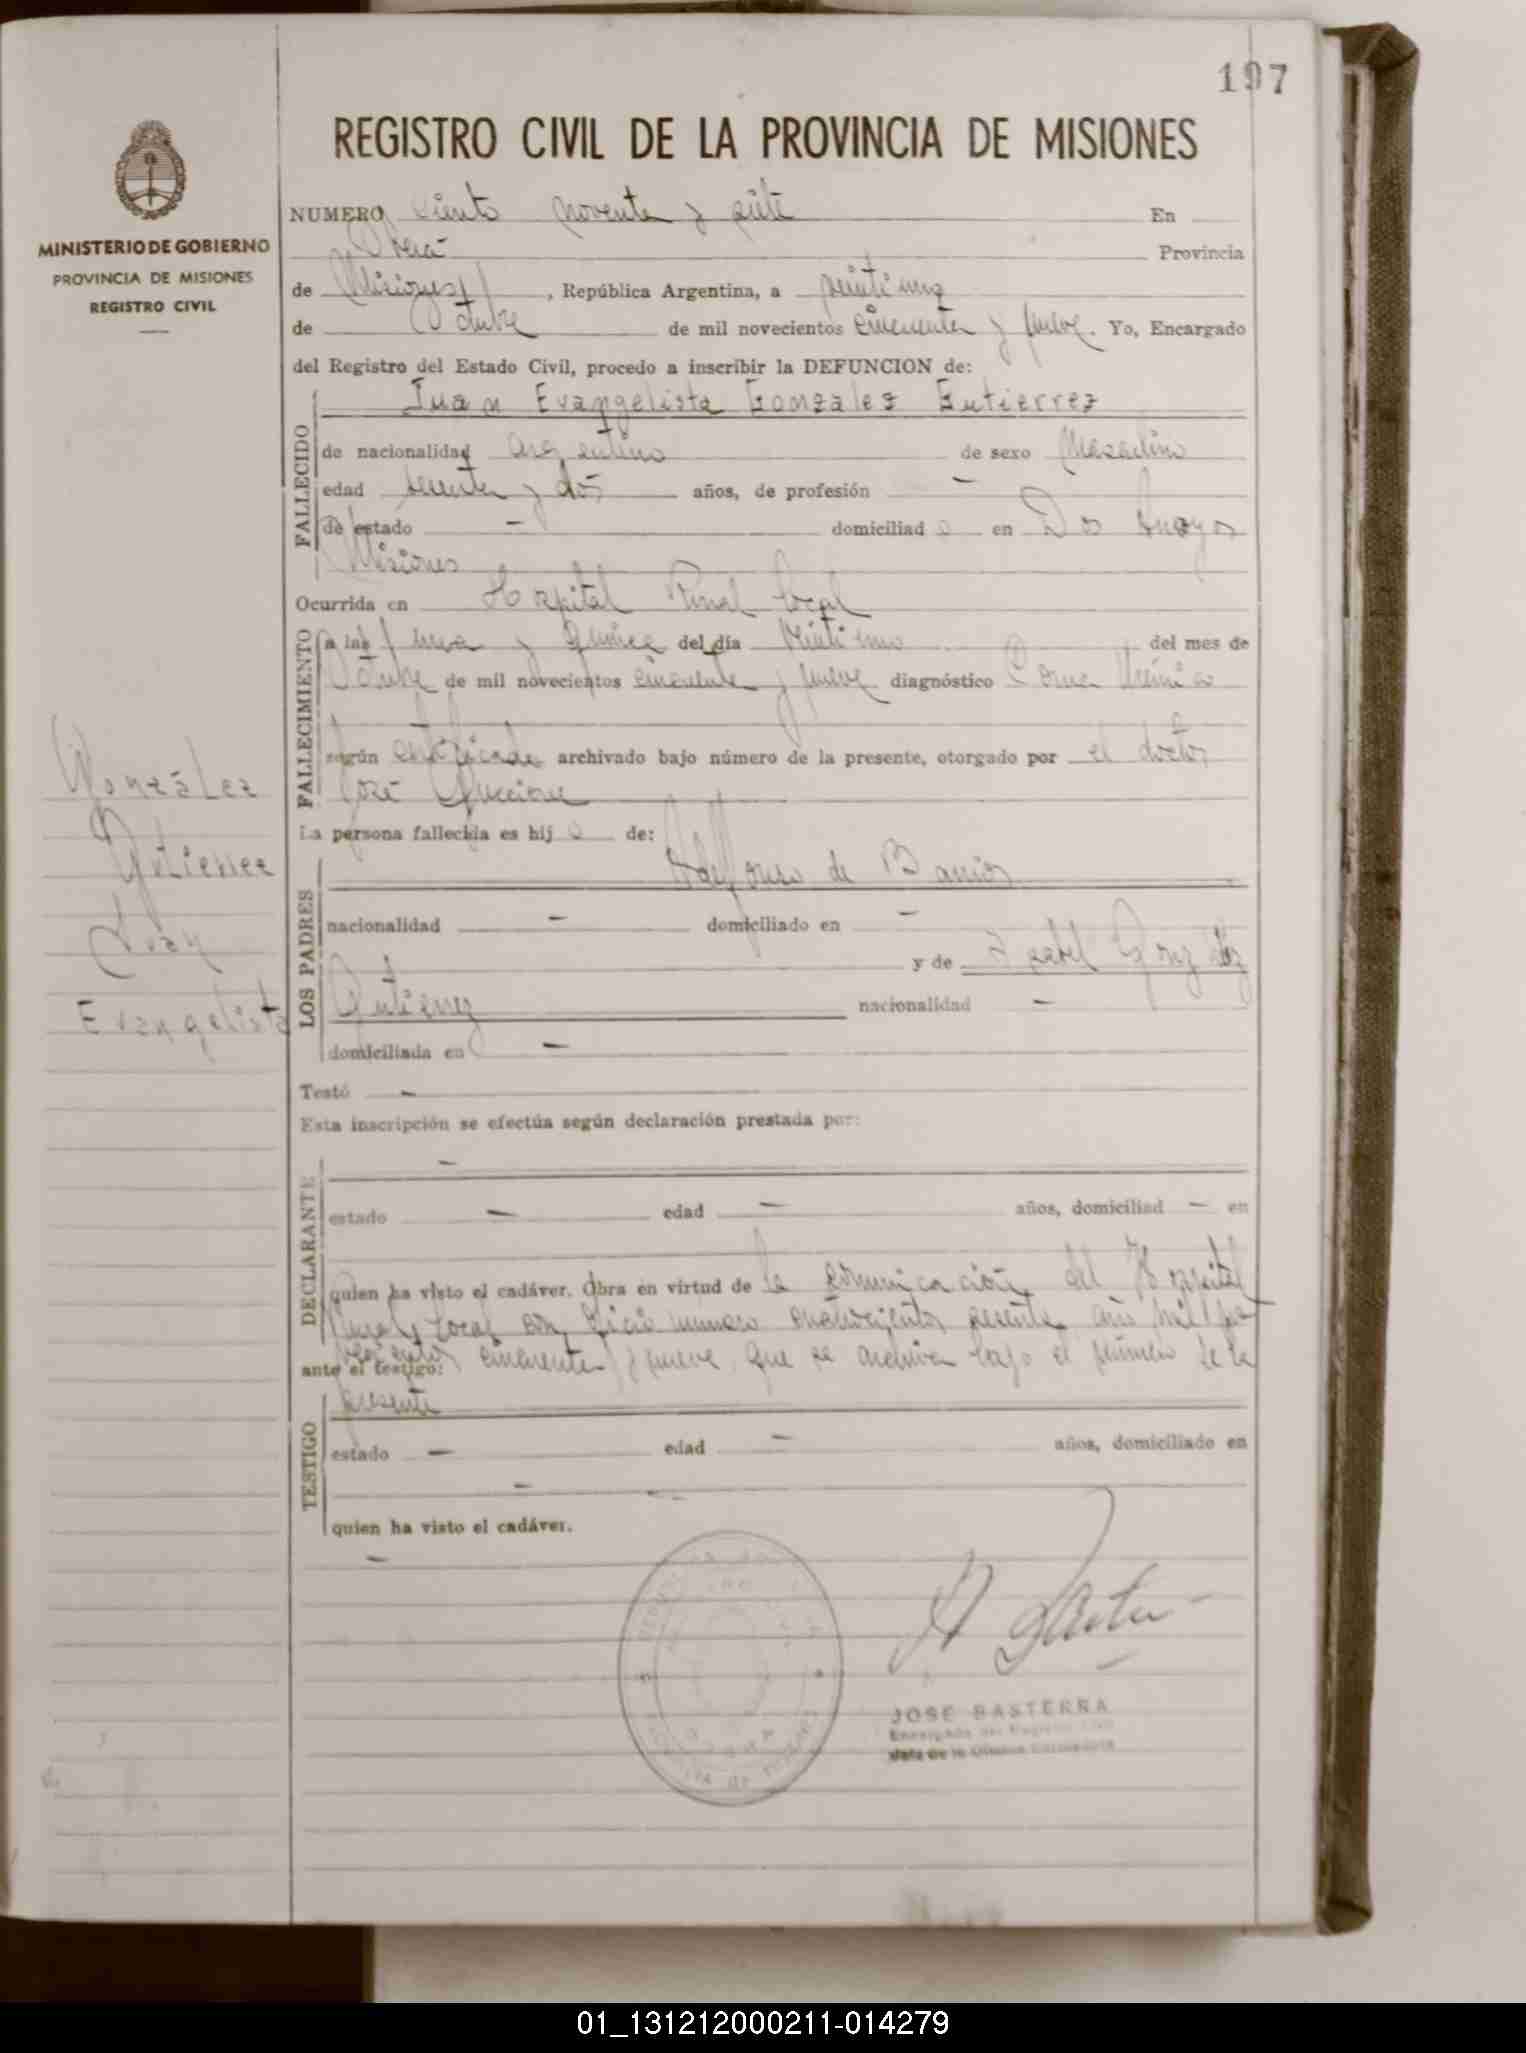 197
REGISTRO CIVIL DE LA PROVINCIA DE MISIONES
MINISTERIO DE GOBIERNO
PROVINCIA DE MISIONES
REGISTRO CIVIL
NUMERO ciento noventa y siete En
Oberá Provincia
de Misiones, República Argentina, a veintiuno
de Octubre de mil novecientos cincuenta y nueve. Yo, Encargado
del Registro del Estado Civil, procedo a inscribir la DEFUNCION de:
Juan Evangelista Gonzalez Gutierrez
FALLECIDO
de nacionalidad argentino de sexo Masculino
edad y dos años, de profesión -
de estado - domiciliad o en Dos
Misiones
Ocurrida en Hospital Rural local
FALLECIMIENTO
a las nueve y quince del día veintiuno del mes de
Octubre de mil novecientos cincuenta y nueve diagnóstico Coma Urémico
según certificado archivado bajo número de la presente, otorgado por el doctor
José
La persona fallecida es hij o de:
González
Gutierrez
Juan
Evangelista
LOS PADRES
Ildefonso de Barrios
nacionalidad - domiciliado en -
y de Isabel González
Gutierrez nacionalidad -
domiciliada en -
Testó -
Esta inscripción se efectúa según declaración prestada por:
DECLARANTE
-
estado - edad - años, domiciliad - en
quien ha visto el cadáver. Obra en virtud de la comunicación del Hospital
Rural local con número cuatrocientos año mil no
vecientos cincuenta y nueve, que se archiva bajo el número de la
ante el testigo:
presente
TESTIGO
estado - edad - años, domiciliado en
- -
quien ha visto el cadáver.
-
JOSE BASTERRA
Encargado del Registro Civil
Jefe de la Oficina
01_131212000211-014279